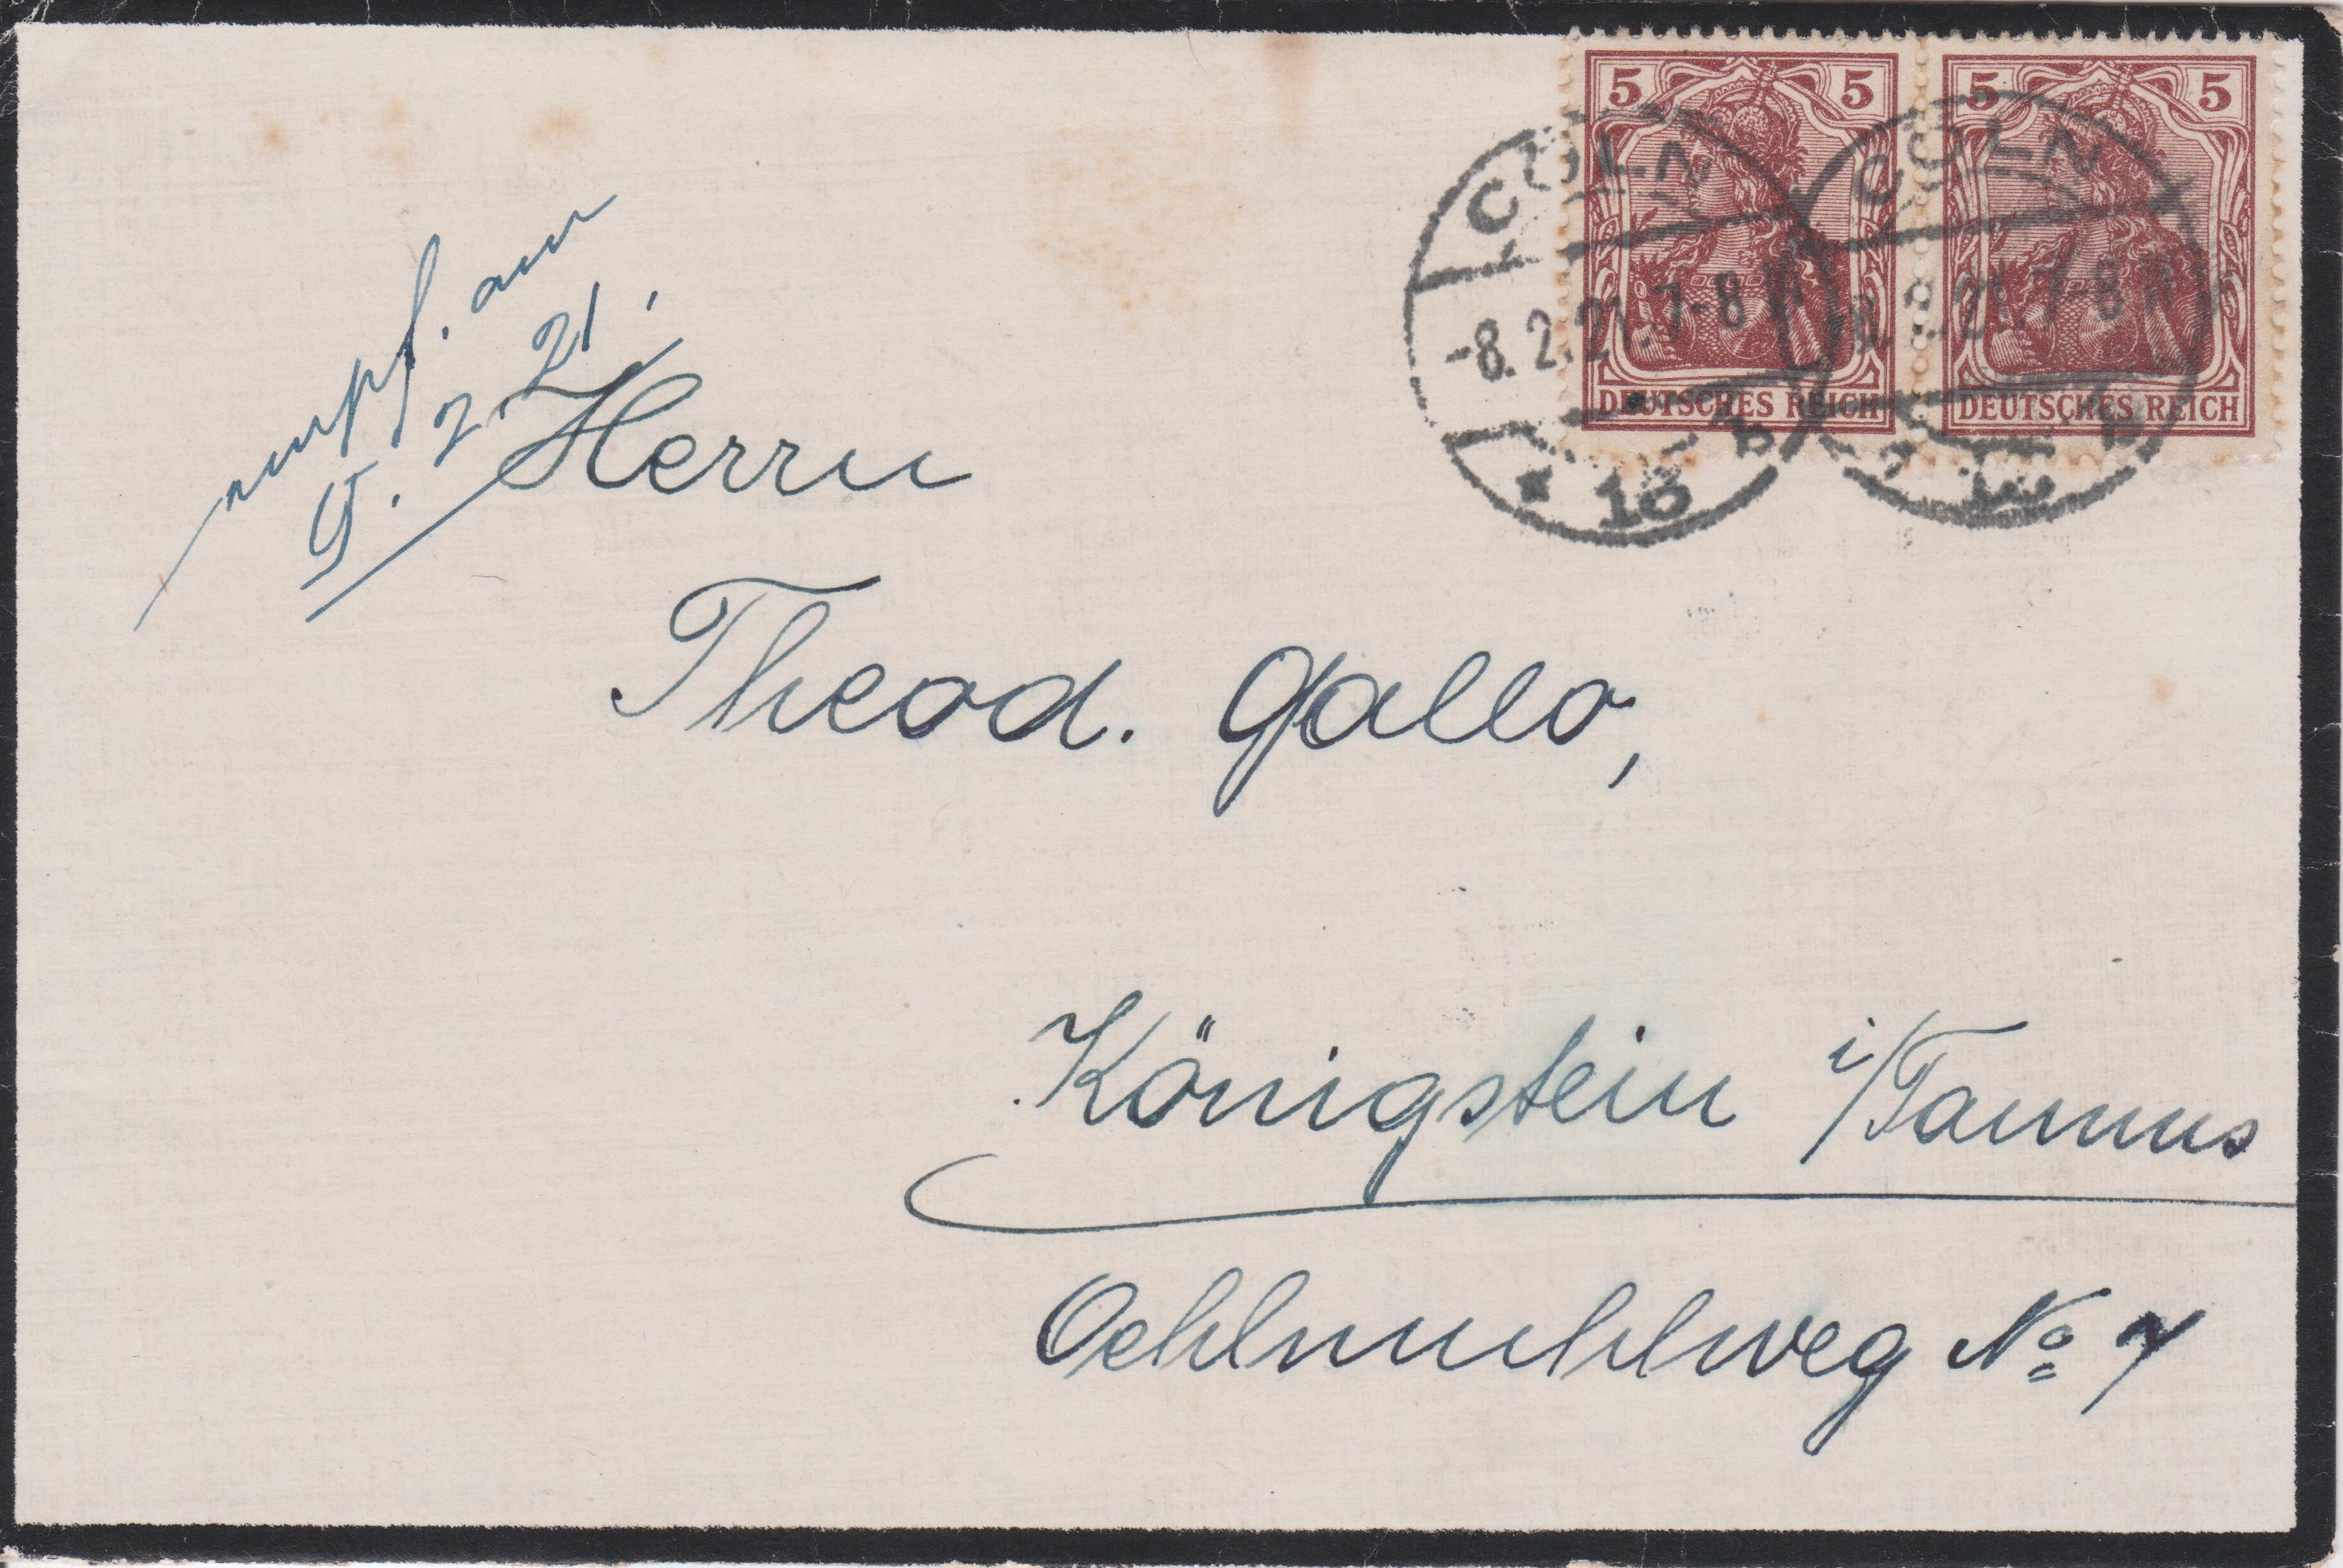 5 5 5 5
CÖLN CÖLN
-8.2.21.7-8 N
DEUTSCHES REICH DEUTSCHES REICH
* 16 b
empf. am
9. 2. 21.
Herrn
Theod. Gallo,
Königstein i/Taunus
Oehlmuhlweg No 7